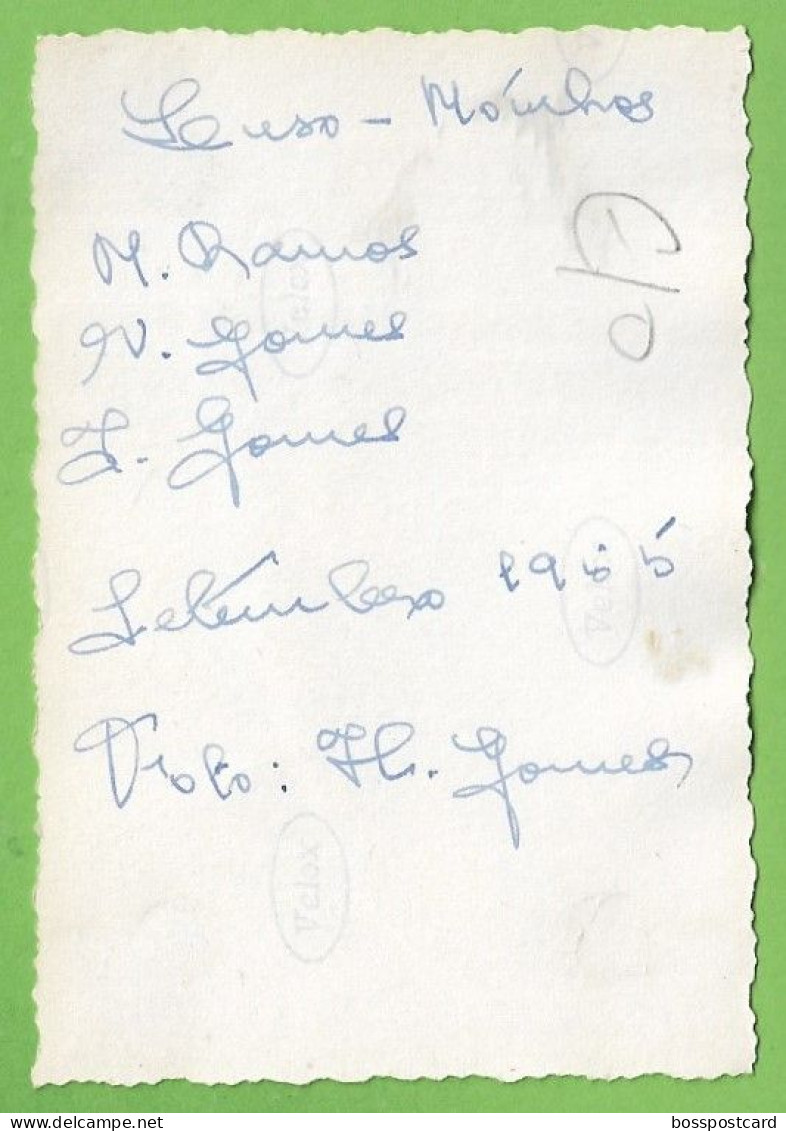 Luso - Moínhos
M. Ramos
N. Gomes
J. Gomes
Setembro 1955
Foto: H. Gomes
Velox
Velox
Velox
bosspostcard